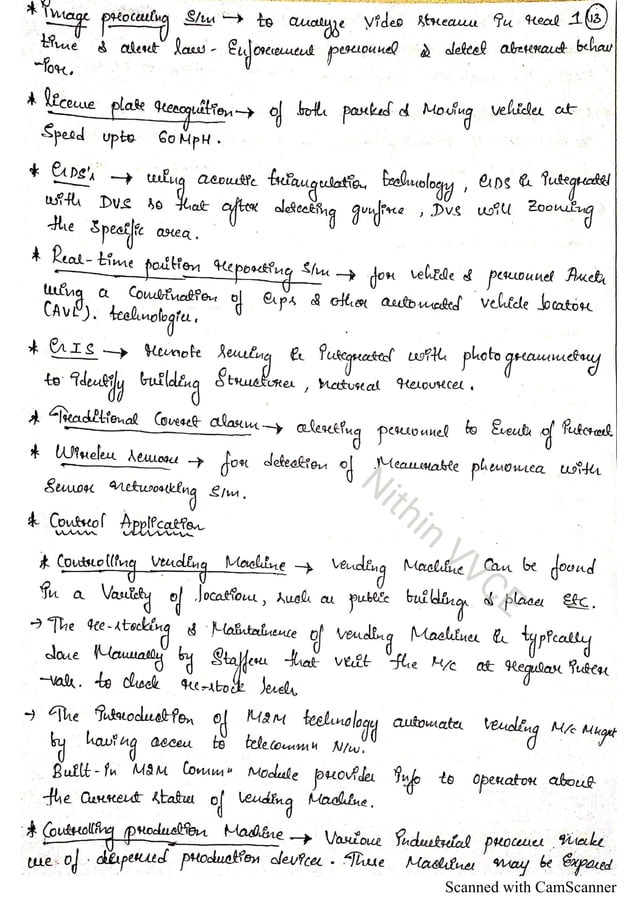 * Image processing S/m → to analyze video streams in real 1 (13)
time & alert law - Enforcement personnel & detect aberrant behav
-ior.
* license plate recognition → of both parked & Moving vehicles at
Speed upto 60 MPH.
* GDS's → using acoustic triangulation technology, GDS is Integrated
with DVS so that after detecting gunfire, DVS will Zooming
the specific area.
* Real-time position reporting S/m → for vehicle & personnel
using a Combination of Gps & other automated vehicle locator
(AVL). technologies.
* GIS → Remote sensing is Integrated with photogrammetry
to identify building Structures, natural resources.
* Traditional Covert alarm → alerting personnel to Events of Interest
* Wireless sensors → for detection of Measurable phenomea with
Sensor networking S/m.
* Control Application
* Controlling vending Machine → Vending Machine Can be found
in a Variety of locations, such as public buildings & places Etc.
→ The re-stocking & Maintainence of vending Machines is typically
done Manually by Staffers that visit the M/c at regular Inter
-vals. to check re-stock levels
→ The Introduction of M2M technology automates vending M/c Mngnt
by having access to telecommn N/w.
Built-in M2M Commn Module provides Info to operator about
the Current status of vending Machine.
* Controlling production Machine → Various Industrial process make
use of dispersed production devices. These Machines may be Exposed
Nithin VVCE
Scanned with CamScanner